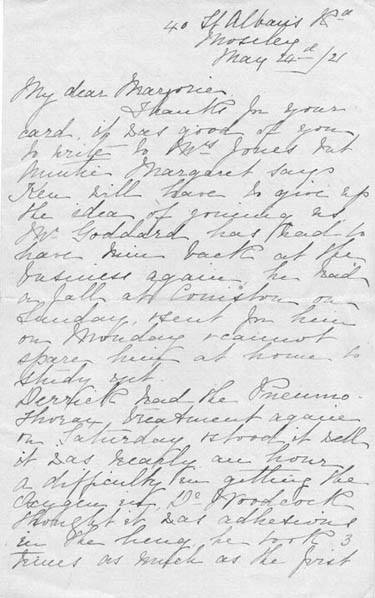 40 St Albans Rd
Moseley
May 24th/21
My dear Marjorie
Thanks for your
card, it was good of you
to write to Mrs Jones but
Auntie Margaret says
Ken will have to give up
the idea of joining us
Mr Goddard has had to
have him back at the
business again, he had
a fall at Coniston on
Sunday, & sent for him
on Monday & cannot
spare him at home to
study yet.
Derrick had the Pneumo-
thorax treatment again
on Saturday & stood it well
it was nearly an hour
a difficulty in getting the
Oxygen in, Dr Woodcock
thought it was adhesions
in the lung, he took 3
times as much as the first